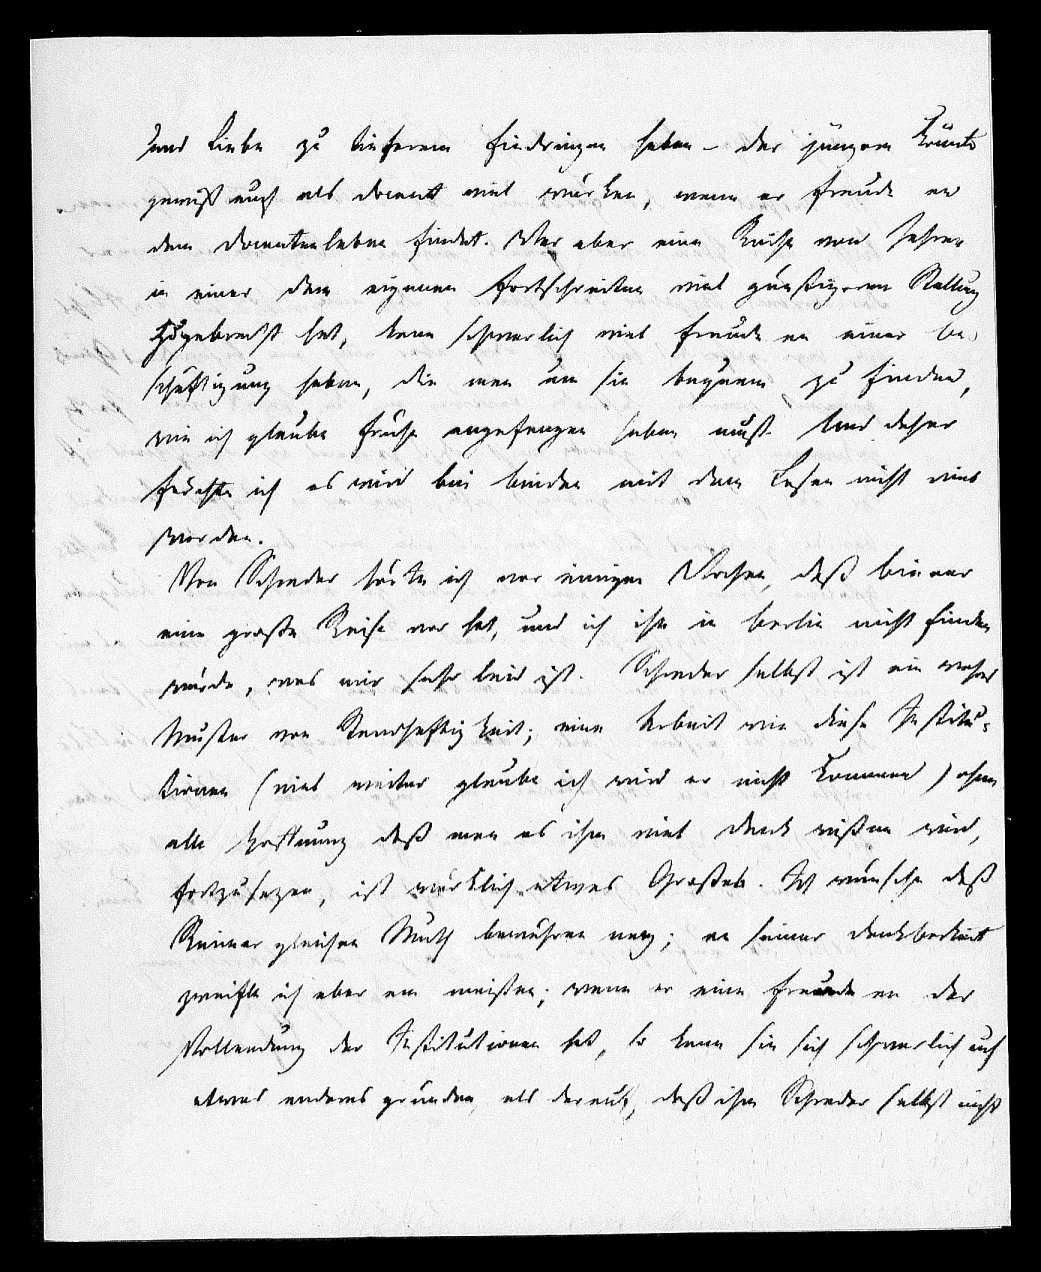 und Liebe zu tieferem Eindringen haben – der jüngere könnte
gewiß auch als docent viel wirken, wenn er Freude an
dem Docentenleben findet. Wer aber eine Reihe von Jahren
in einer dem eigenen Fortschreiten viel günstigeren Stellung
zugebracht hat, kann schwerlich viel Freude an einer Be-
schäftigung haben, die man um sie bequem zu finden,
wie ich glaube früher angefangen haben muß. Und daher
fürchte ich es wird bei beiden mit dem Lesen nicht viel
werden.
Von Schrader hörte ich vor einigen Wochen, daß
eine große Reise vor hat, und ich ihn in Berlin nicht finden
würde, was mir sehr leid ist. Schrader selbst ist ein wahres
Muster von Standhaftigkeit; eine Arbeit wie diese Institu-
tionen (viel weiter glaube ich wird er nicht kommen) ohne
alle Hoffnung daß man es ihm viel Dank wißen wird,
fortzusezen, ist würklich etwas Großes. Ich wünsche daß
Reimer gleichen Muth bewähren mag; an seiner Dankbarkeit
zweifle ich aber am meisten; wenn er eine Freude an der
Vollendung der Institutionen hat, so kann sie sich schwerlich auf
etwas anderes gründen, als darauf, daß ihm Schrader selbst nicht